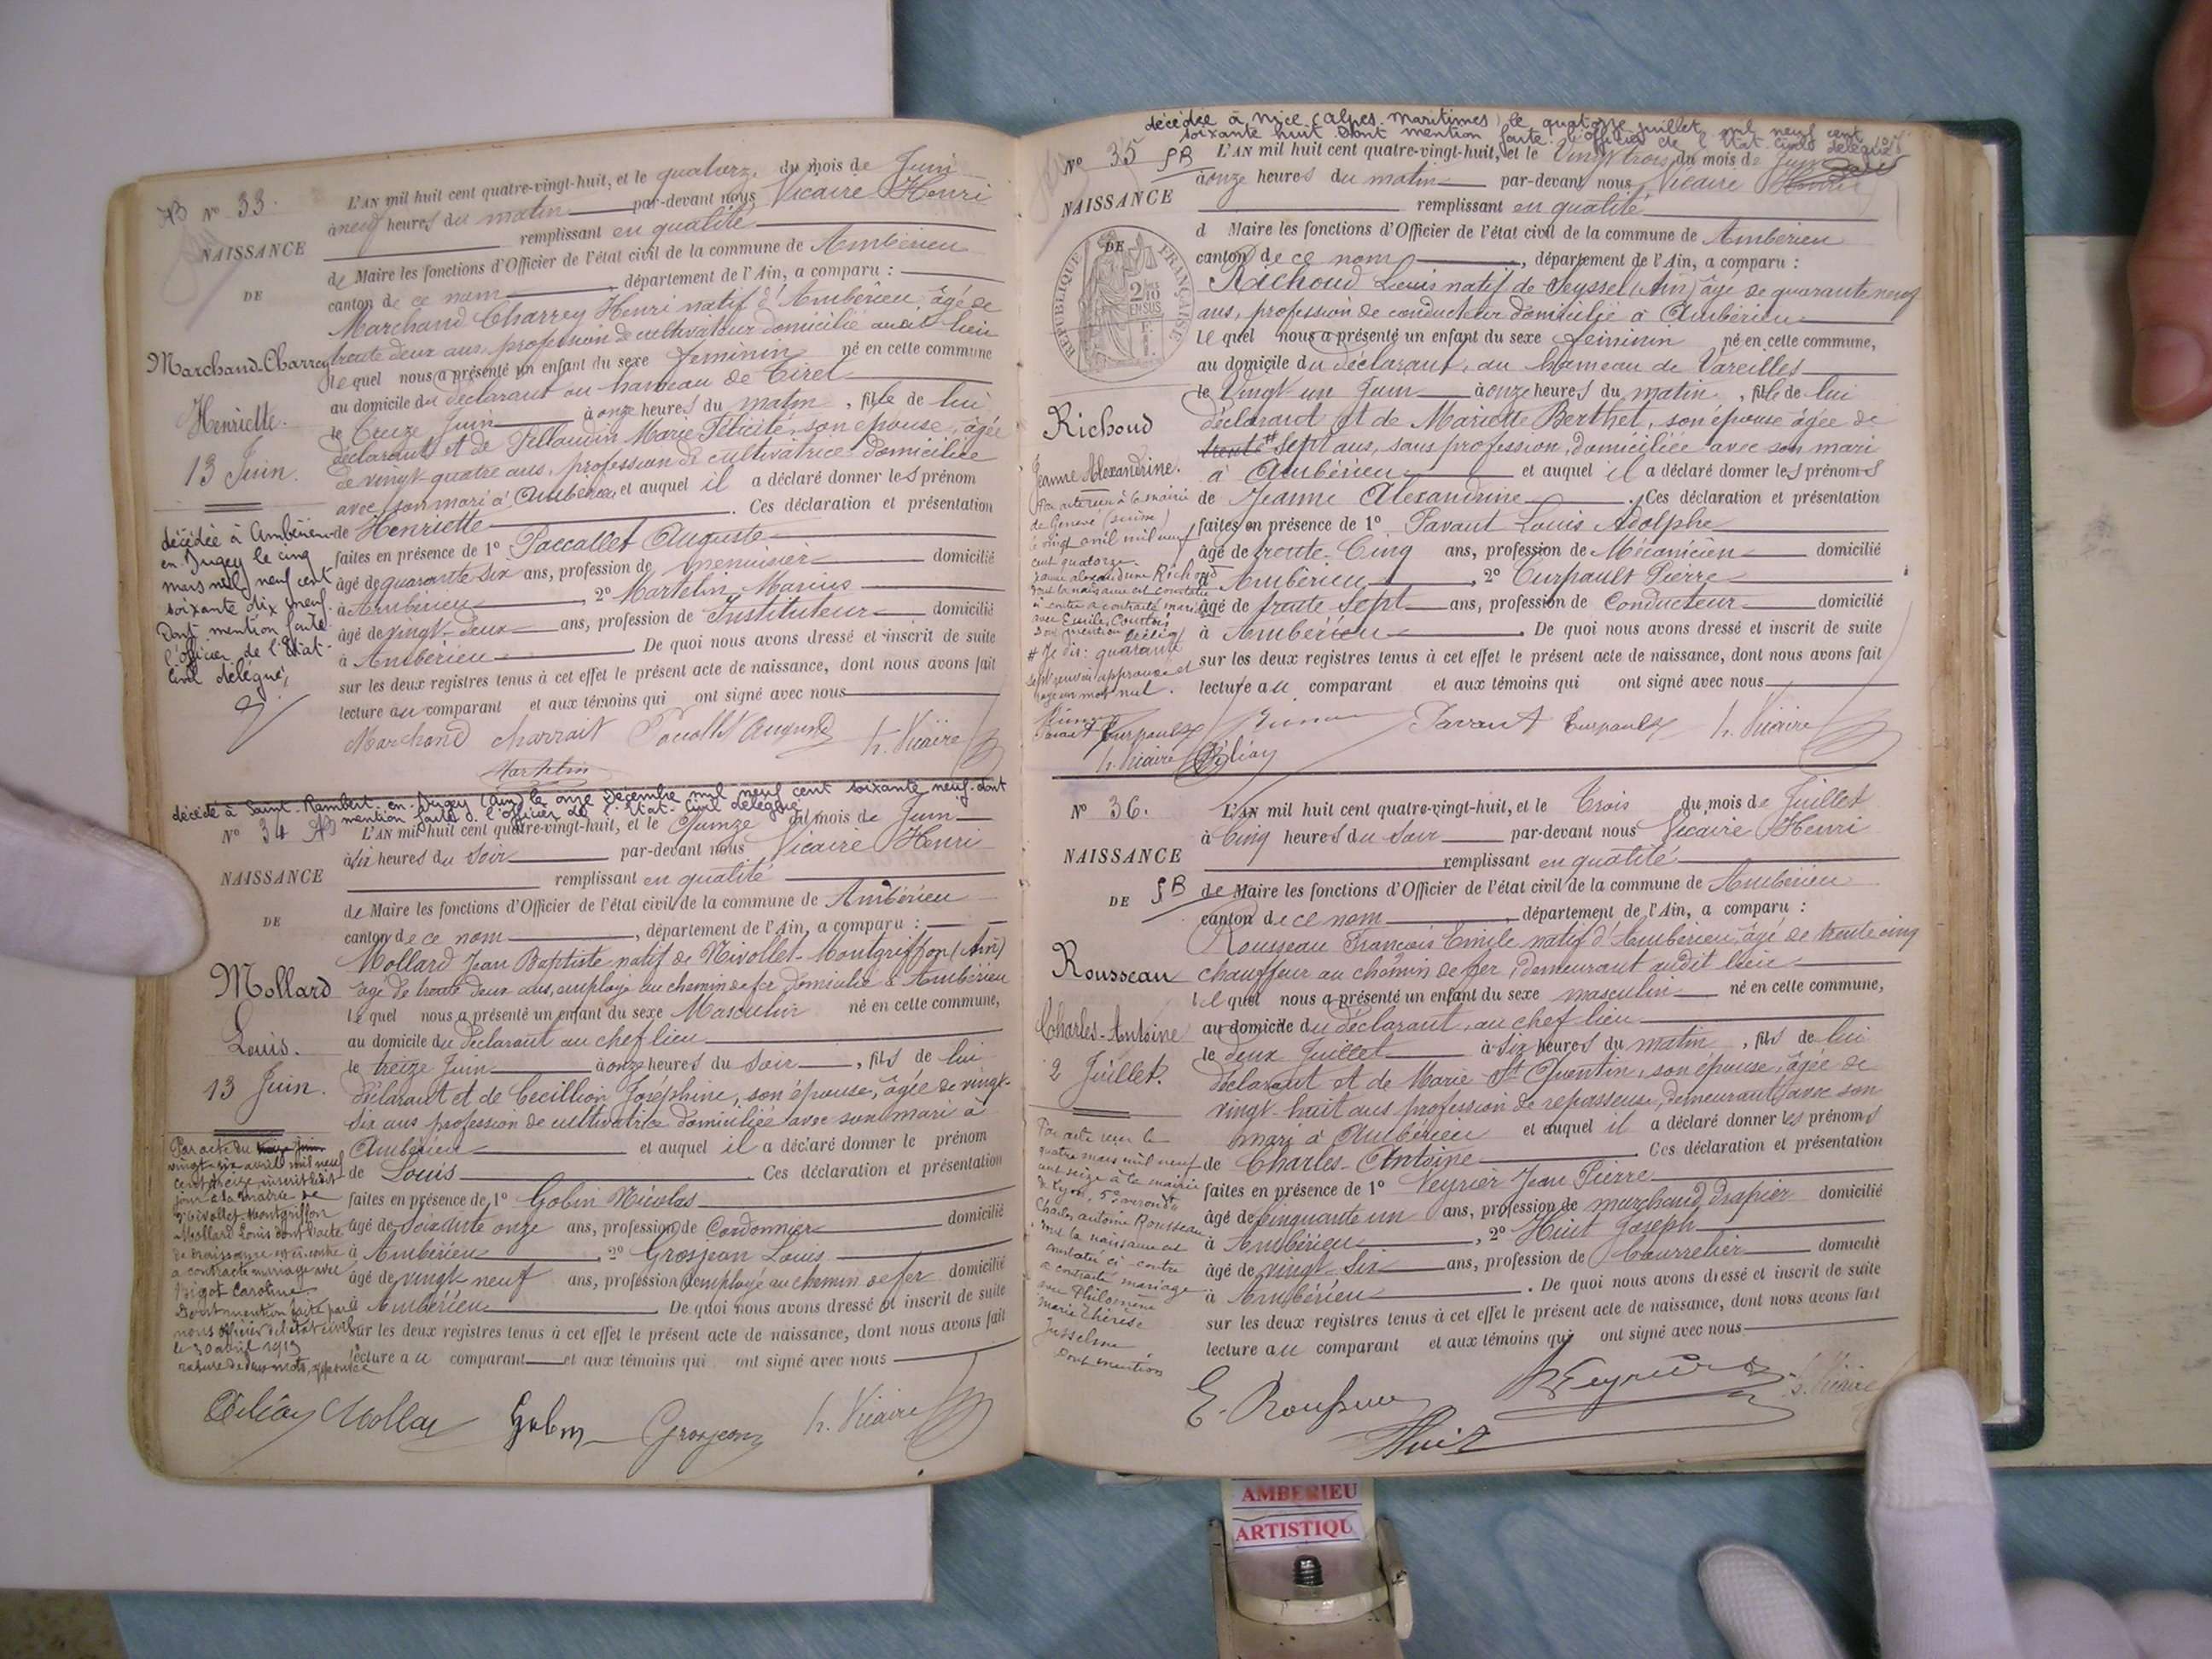 N° 33.
NAISSANCE
DE
Marchand-Charrey
Henriette.
13 Juin.
décédée à Ambérieu-
en Bugey le cinq
mars mil neuf cent
soixante dix neuf.
Dont mention faite.
l'officier de l'Etat-
Civil délégué,
L'AN mil huit cent quatre-vingt-huit, et le quatorze du mois de Juin
à neuf heures du matin par-devant nous Vicaire Henri
remplissant en qualité
de Maire les fonctions d'Officier de l'état civil de la commune de Ambérieu
canton de ce nom, département de l'Ain, a comparu :
Marchand Charrey Henri natif d'Ambérieu âgé de
trente deux ans, profession de cultivateur domicilié audit lieu
le quel nous a présenté un enfant du sexe féminin né en cette commune
au domicile du déclarant au hameau de Tiret
le treize Juin à onze heures du matin, fille de lui
déclarant et de Pellaudin Marie Félicité, son épouse, âgée
de vingt-quatre ans, profession de cultivatrice domiciliée
avec son mari à Ambérieu et auquel il a déclaré donner les prénom
de Henriette. Ces déclaration et présentation
faites en présence de 1° Paccallet Auguste
âgé de quarante six ans, profession de menuisier domicilié
à Ambérieu, 2° Martelin Marius
âgé de vingt-deux ans, profession de Instituteur domicilié
à Ambérieu. De quoi nous avons dressé et inscrit de suite
sur les deux registres tenus à cet effet le présent acte de naissance, dont nous avons fait
lecture au comparant et aux témoins qui ont signé avec nous
Marchand charrait h. Vicaire
Martelin
décédé à Saint-Rambert-en-Bugey (Ain) le onze Décembre mil neuf cent soixante neuf. dont
mention faite. l'officier de l'Etat-Civil délégué
N° 34
NAISSANCE
DE
Mollard
Louis.
13 Juin.
Par acte du treize juin
vingt-six avril mil neuf
cent treize inscrit ledit
jour à la mairie de
Nivollet-Montgriffon
Mollard Louis dont l'acte
de naissance est ci-contre
a contracté mariage avec
Bigot Caroline
Dont mention faite par
nous officier de l'état civil
le 30 avril 1913
rature de deux mots, approuvée
L'AN mil huit cent quatre-vingt-huit, et le Quinze du mois de Juin
à six heures du soir par-devant nous Vicaire Henri
remplissant en qualité
de Maire les fonctions d'Officier de l'état civil de la commune de Ambérieu
canton de ce nom, département de l'Ain, a comparu :
Mollard Jean Baptiste natif de Nivollet-Montgriffon (Ain)
âgé de trente deux ans, employé au chemin de fer domicilié à Ambérieu
le quel nous a présenté un enfant du sexe Masculin né en cette commune,
au domicile du déclarant au chef lieu
le treize Juin à onze heures du soir, fils de lui
déclarant et de Cecillion Joséphine, son épouse, âgée de vingt-
six ans profession de cultivatrice domiciliée avec son mari à
Ambérieu et auquel il a déclaré donner le prénom
de Louis. Ces déclaration et présentation
faites en présence de 1° Gobin Nicolas
âgé de soixante onze ans, profession de Cordonnier domicilié
à Ambérieu, 2° Grosjean Louis
âgé de vingt neuf ans, profession d'employé au chemin de fer domicilié
à Ambérieu. De quoi nous avons dressé et inscrit de suite
sur les deux registres tenus à cet effet le présent acte de naissance, dont nous avons fait
lecture au comparant et aux témoins qui ont signé avec nous
Mollar Gobin Grosjean h. Vicaire
décédée à Nice (Alpes-Maritimes) le quatorze juillet mil neuf cent
soixante huit. Dont mention faite. l'officier de l'Etat-Civil délégué
N° 35
NAISSANCE
DE
RÉPUBLIQUE FRANÇAISE
2/10 EN SUS
Richoud
Jeanne Alexandrine.
Par acte reçu à la mairie
de Genève (suisse)
le vingt avril mil neuf
cent quatorze
Jeanne Alexandrine Richoud
dont la naissance est constatée
ci contre a contracté mariage
avec Emile Courtois
Dont mention
# Je dis: quarante
sept renvoi approuvé et
rayé un mot nul.
Turpault
h. Vicaire
L'AN mil huit cent quatre-vingt-huit, et le Vingt trois du mois de Juin
à onze heures du matin par-devant nous Vicaire Henri
remplissant en qualité
d Maire les fonctions d'Officier de l'état civil de la commune de Ambérieu
canton de ce nom, département de l'Ain, a comparu :
Richoud Louis natif de Seyssel (Ain) âgé de quarante neuf
ans, profession de conducteur domicilié à Ambérieu
le quel nous a présenté un enfant du sexe féminin né en cette commune,
au domicile du déclarant, au hameau de Vareilles
le Vingt un Juin à onze heures du matin, fille de lui
déclarant et de Mariette Berthet, son épouse âgée de
trente # sept ans, sans profession, domiciliée avec son mari
à Ambérieu et auquel il a déclaré donner les prénoms
de Jeanne Alexandrine. Ces déclaration et présentation
faites en présence de 1° Pavaut Louis Adolphe
âgé de trente-Cinq ans, profession de Mécanicien domicilié
à Ambérieu, 2° Turpault Pierre
âgé de trente sept ans, profession de Conducteur domicilié
à Ambérieu. De quoi nous avons dressé et inscrit de suite
sur les deux registres tenus à cet effet le présent acte de naissance, dont nous avons fait
lecture au comparant et aux témoins qui ont signé avec nous
Pavaut Turpault h. Vicaire
N° 36.
NAISSANCE
DE
Rousseau
Charles-Antoine
2 Juillet.
Par acte reçu le
quatre mars mil neuf
cent seize à la mairie
de Lyon, 5e arrondt
Charles Antoine Rousseau
dont la naissance est
constatée ci-contre
a contracté mariage
avec Philomène
Marie Thérèse
Jusselme
Dont mention
L'AN mil huit cent quatre-vingt-huit, et le Trois du mois de Juillet
à Cinq heures du soir par-devant nous Vicaire Henri
remplissant en qualité
de Maire les fonctions d'Officier de l'état civil de la commune de Ambérieu
canton de ce nom, département de l'Ain, a comparu :
Rousseau François Emile natif d'Ambérieu, âgé de trente cinq
chauffeur au chemin de fer, demeurant audit lieu
le quel nous a présenté un enfant du sexe masculin né en cette commune,
au domicile du déclarant, au chef lieu
le deux Juillet à six heures du matin, fils de lui
déclarant et de Marie St Quentin, son épouse, âgée de
vingt-huit ans profession de repasseuse, demeurant avec son
mari à Ambérieu et auquel il a déclaré donner les prénoms
de Charles-Antoine Ces déclaration et présentation
faites en présence de 1° Veyrier Jean Pierre
âgé de Cinquante un ans, profession de marchand drapier domicilié
à Ambérieu, 2° Huit Joseph
âgé de vingt-six ans, profession de bourrelier domicilié
à Ambérieu. De quoi nous avons dressé et inscrit de suite
sur les deux registres tenus à cet effet le présent acte de naissance, dont nous avons fait
lecture au comparant et aux témoins qui ont signé avec nous
E. Rousseau Veyrier h. Vicaire
Huit
AMBERIEU
ARTISTIQU